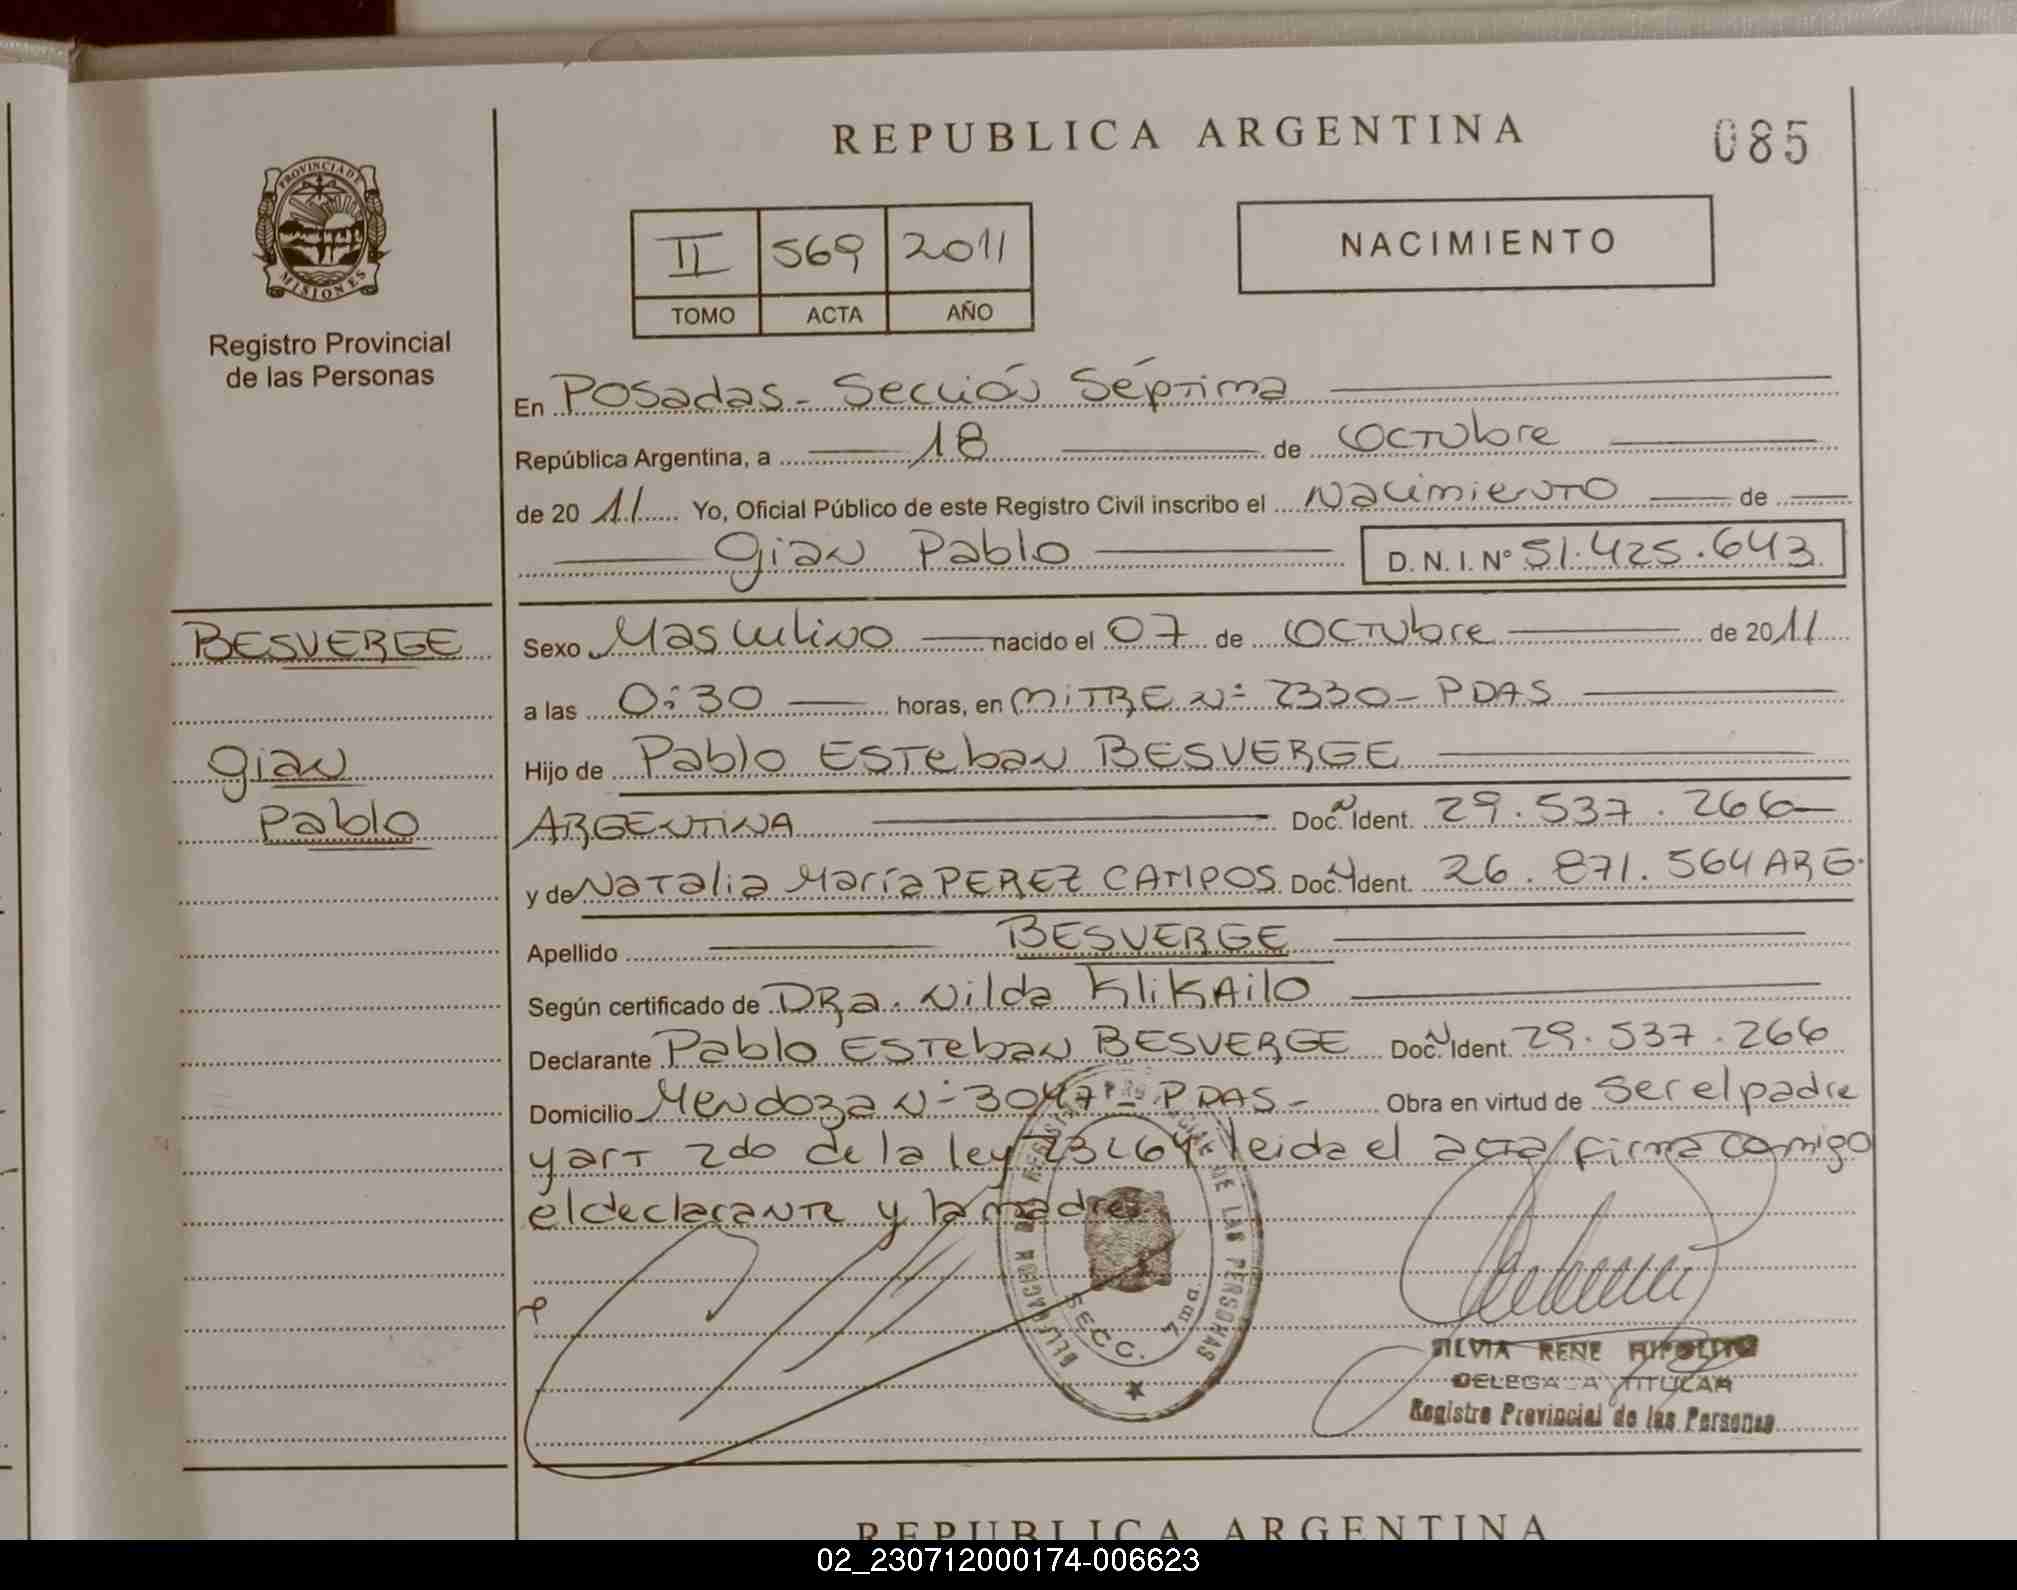 REPUBLICA ARGENTINA
085
PROVINCIA DE
MISIONES
Registro Provincial
de las Personas
II 569 2011
TOMO ACTA AÑO
NACIMIENTO
En Posadas - Sección Séptima
República Argentina, a 18 de Octubre
de 20 11 Yo, Oficial Público de este Registro Civil inscribo el Nacimiento de
Gian Pablo D.N.I. Nº 51.425.643
BESVERGE
Gian
Pablo
Sexo Masculino nacido el 07 de Octubre de 2011
a las 0:30 horas, en MITRE Nº 2330 - PDAS
Hijo de Pablo Esteban BESVERGE
ARGENTINA Doc. Ident. 29.537.266
y de Natalia María PEREZ CAMPOS Doc. Ident. 26.871.564 ARG.
Apellido BESVERGE
Según certificado de DRa. Nilda KliKAilo
Declarante Pablo Esteban BESVERGE Doc. Ident. 29.537.266
Domicilio Mendoza Nº 3047 - PDAS - Obra en virtud de Ser el padre
y art 2do de la ley 23264 leida el acta firma comigo
el declarante y la madre
DE LAS PERSONAS
SECC. 7ma.
SILVIA RENE HIPOLITO
DELEGADA TITULAR
Registro Provincial de las Personas
REPUBLICA ARGENTINA
02_230712000174-006623